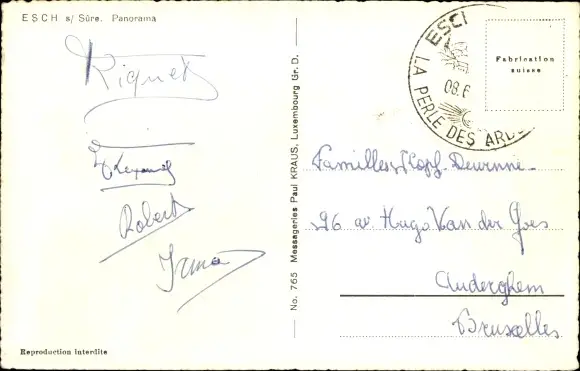 ESCH s/ Sûre. Panorama
Riquet
Robert
Irma
Reproduction interdite
No. 765 Messageries Paul KRAUS, Luxembourg Gr. D.
ESCH
LA PERLE DES ARD
08.6
Fabrication
suisse
Familles Kopf-Devinne-
26 av. Hugo Van der Goes
Auderghem
Bruxelles